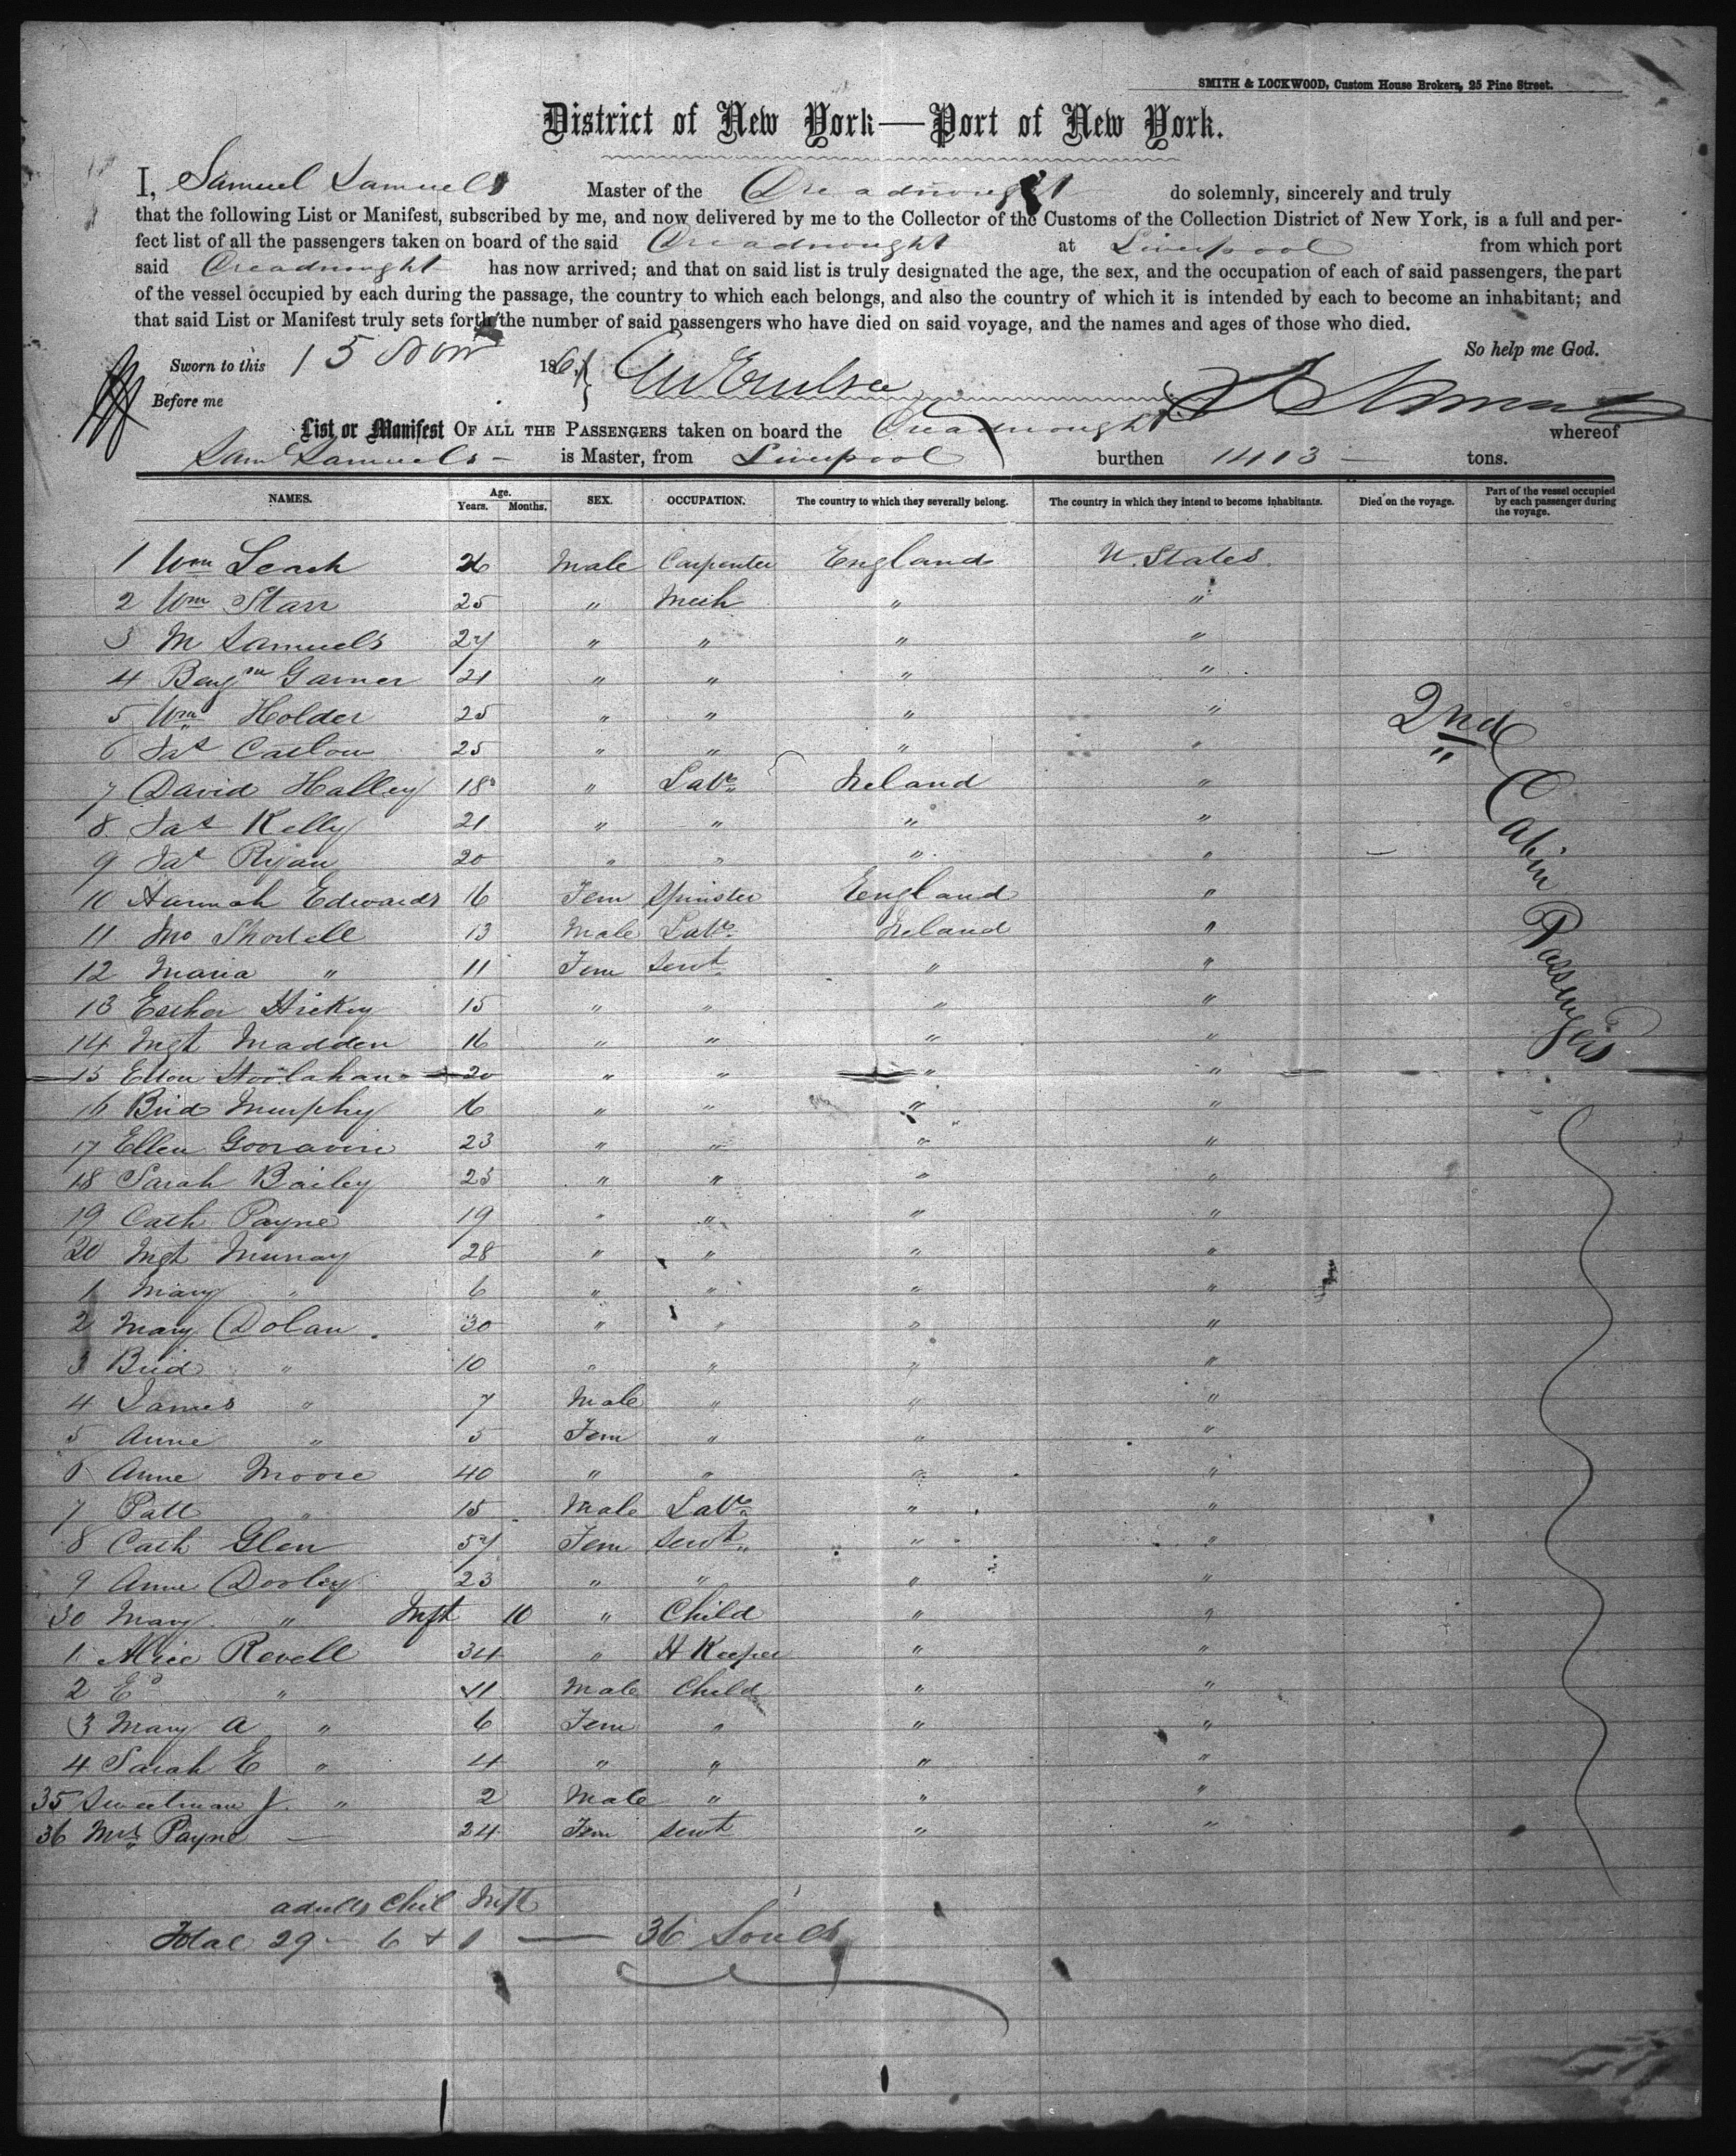 SMITH & LOCKWOOD, Custom House Brokers, 25 Pine Street.
District of New York—Port of New York.
I, Samuel Samuels Master of the Dreadnought do solemnly, sincerely and truly
that the following List or Manifest, subscribed by me, and now delivered by me to the Collector of the Customs of the Collection District of New York, is a full and per-
fect list of all the passengers taken on board of the said Dreadnought at Liverpool from which port
said Dreadnought has now arrived; and that on said list is truly designated the age, the sex, and the occupation of each of said passengers, the part
of the vessel occupied by each during the passage, the country to which each belongs, and also the country of which it is intended by each to become an inhabitant; and
that said List or Manifest truly sets forth the number of said passengers who have died on said voyage, and the names and ages of those who died.
So help me God.
Sworn to this 15 Nov 186
Before me
List or Manifest OF ALL THE PASSENGERS taken on board the Dreadnought whereof
Saml Samuels - is Master, from Liverpool burthen 1413 — tons.
NAMES. Age. Years. Months. SEX. OCCUPATION. The country to which they severally belong. The country in which they intend to become inhabitants. Died on the voyage. Part of the vessel occupied by each passenger during the voyage.
1 Wm Leach 26 Male Carpenter England U. States.
2 Wm Starr 25 " Mech " "
3 M Samuels 27 " " " "
4 Benjm Garner 21 " " " "
5 Wm Holder 25 " " " "
6 Jas Catlow 25 " " " "
7 David Halley 18 " Labr Ireland "
8 Jas Kelly 21 " " " "
9 Jas Ryan 20 " " " "
10 Hannah Edwards 16 Fem Spinster England "
11 Jno 13 Male Labr Ireland "
12 Maria " 11 Fem Servt " "
13 Esther Hickey 15 " " " "
14 Mgt Madden 16 " " " "
15 Ellen Hoolahan 20 " " " "
16 Brid Murphy 16 " " " "
17 Ellen 23 " " " "
18 Sarah Bailey 23 " " " "
19 Cath Payne 19 " " " "
20 Mgt Murray 28 " " " "
1 Mary " 6 " " " "
2 Mary Dolan 30 " " " "
3 Brid " 10 " " " "
4 James " 7 Male " " "
5 Anne " 5 Fem " " "
6 Anne Moore 40 " " " "
7 Patt " 15 Male Labr " "
8 Cath Glen 57 Fem Servt " "
9 Anne Dooley 23 " " " "
30 Mary " Inft 10 " Child " "
1 Alice Revell 34 " H Keeper " "
2 Ed " 11 Male Child " "
3 Mary A " 6 Fem " " "
4 Sarah E " 4 " " " "
35 Sweetman J. " 2 Male " " "
36 Mrs Payne — 24 Fem Servt " "
2nd Cabin Passengers
adults Chil Inft
Total 29 - 6 + 1 — 36 Souls